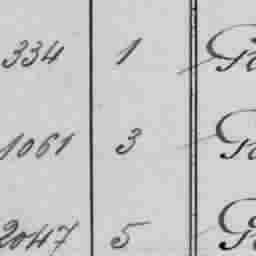 334 1
1061 3
2047 5